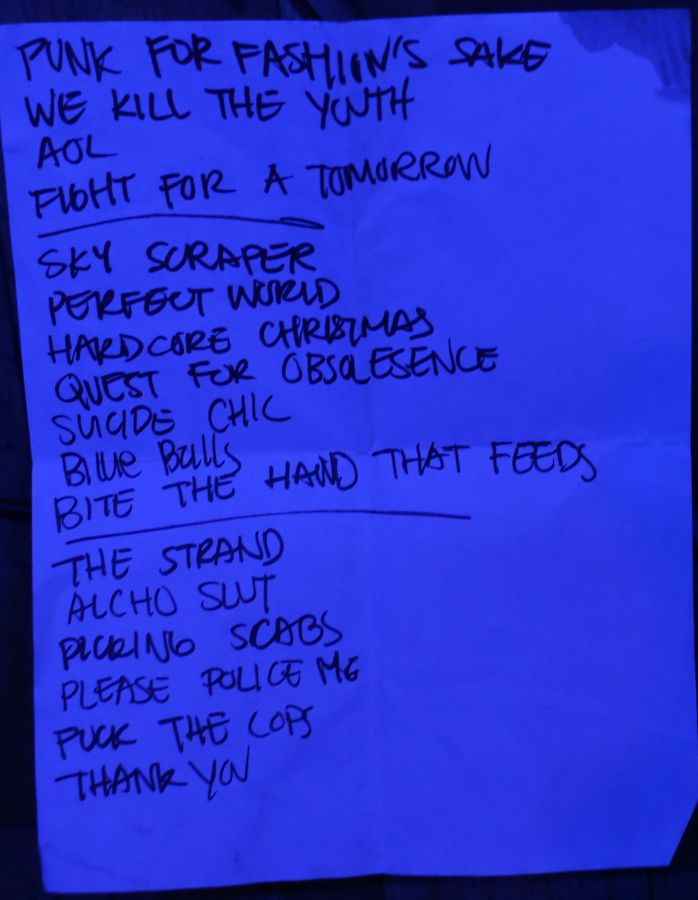 PUNK FOR FASHION'S SAKE
WE KILL THE YOUTH
AOL
FIGHT FOR A TOMORROW
SKY SCRAPER
PERFECT WORLD
HARDCORE CHRISTMAS
QUEST FOR OBSOLESENCE
SUICIDE CHIC
Blue Balls
BITE THE HAND THAT FEEDS
THE STRAND
ALCHO SLUT
PICKING SCABS
PLEASE POLICE ME
FUCK THE COPS
THANK YOU